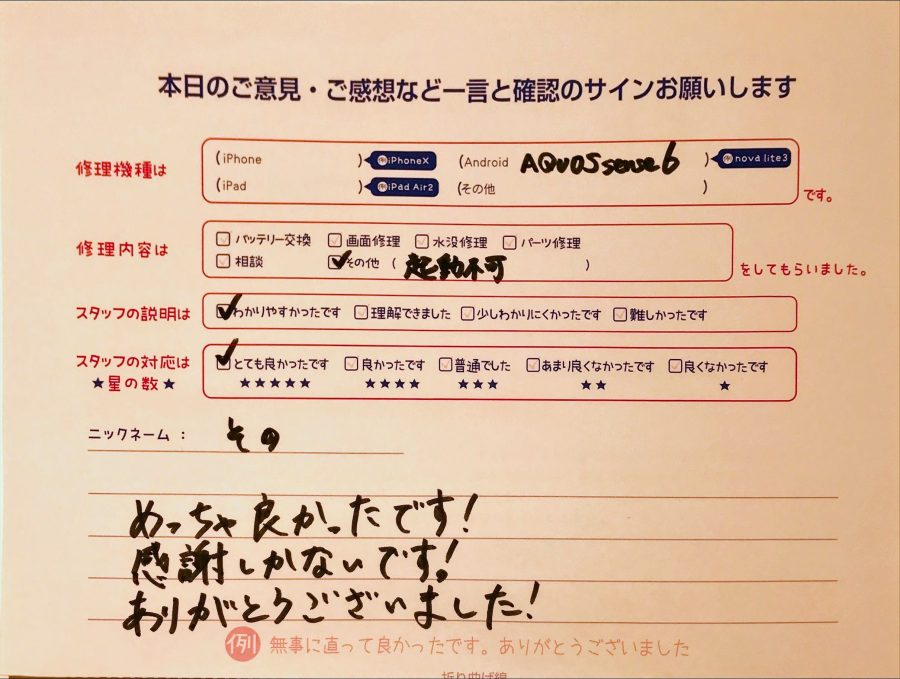 本日のご意見・ご感想など一言と確認のサインお願いします
修理機種は (iPhone ) iPhoneX (Android AQUOS sense6 ) nova lite3
(iPad ) iPad Air2 (その他 ) です。
修理内容は バッテリー交換 画面修理 水没修理 パーツ修理
相談 その他 ( 起動不可 ) をしてもらいました。
スタッフの説明は わかりやすかったです 理解できました 少しわかりにくかったです 難しかったです
スタッフの対応は とても良かったです 良かったです 普通でした あまり良くなかったです 良くなかったです
★星の数★ ★★★★★ ★★★★ ★★★ ★★ ★
ニックネーム： その
めっちゃ良かったです!
感謝しかないです!
ありがとうございました!
例 無事に直って良かったです。ありがとうございました
折り曲げ線